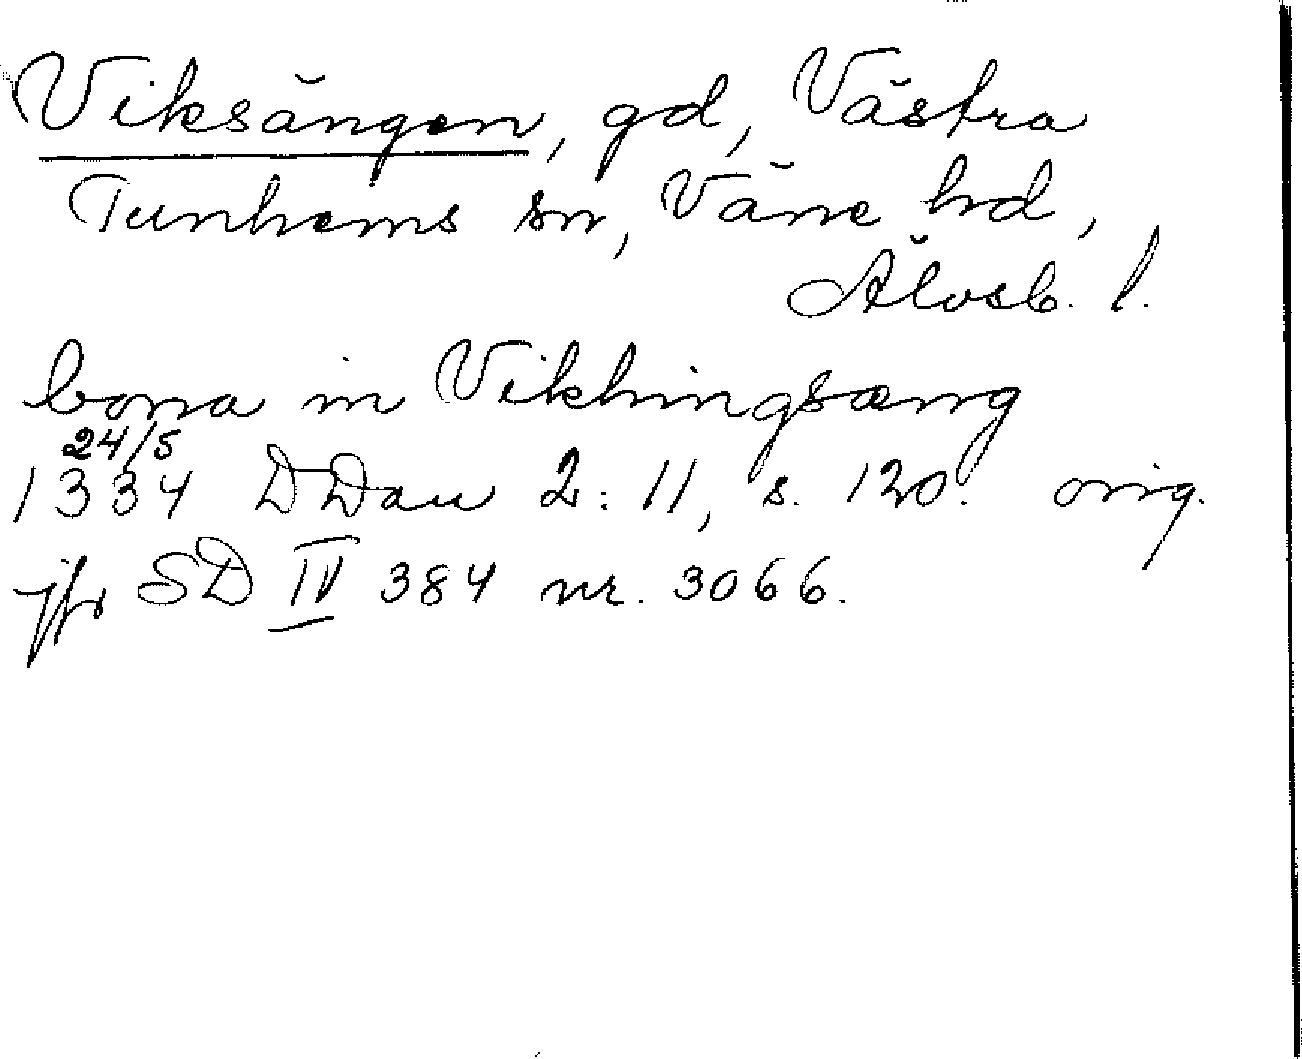 Viksängen, gd, Västra
Tunhems sn, Väne hd,
Älvsb. l.
bona in Vikhingsæng
24/5
1334 DDan 2: 11, s. 120. orig.
jfr SD IV 384 nr. 3066.